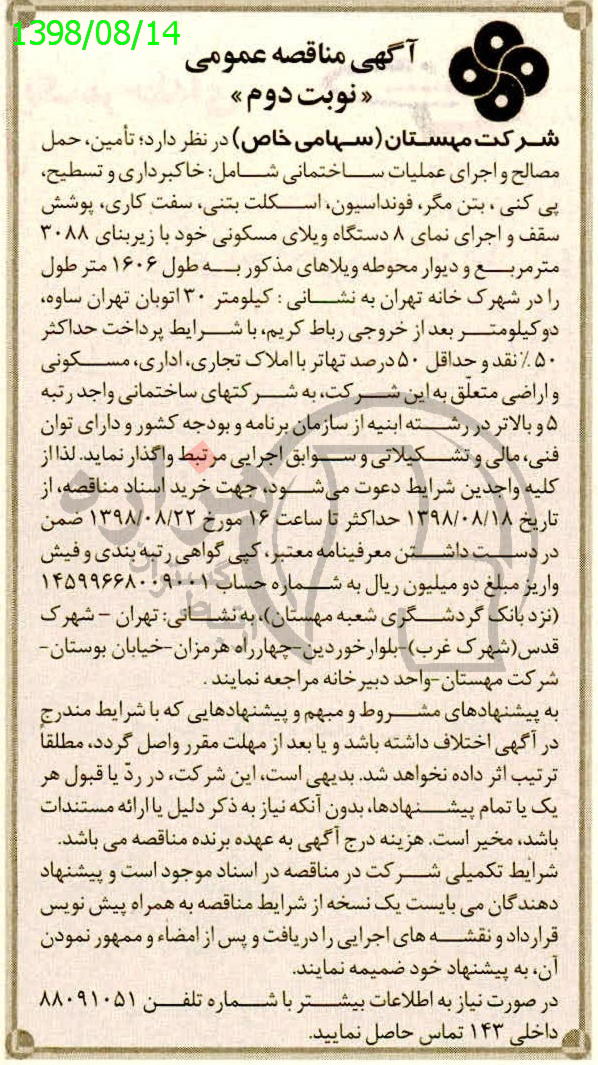 1398/08/14
آگهی مناقصه عمومی
«نوبت دوم»
شرکت مهستان (سهامی خاص) در نظر دارد؛ تأمین، حمل
مصالح و اجرای عملیات ساختمانی شامل: خاکبرداری و تسطیح،
پی کنی ، بتن مگر، فونداسیون، اسکلت بتنی، سفت کاری، پوشش
سقف و اجرای نمای ۸ دستگاه ویلای مسکونی خود با زیربنای ۳۰۸۸
مترمربع و دیوار محوطه ویلاهای مذکور به طول ۱۶۰۶ متر طول
را در شهرک خانه تهران به نشانی : کیلومتر ۳۰ اتوبان تهران ساوه،
دو کیلومتر بعد از خروجی رباط کریم، با شرایط پرداخت حداکثر
۵۰٪ نقد و حداقل ۵۰ درصد تهاتر با املاک تجاری، اداری، مسکونی
و اراضی متعلّق به این شرکت، به شرکتهای ساختمانی واجد رتبه
۵ و بالاتر در رشته ابنیه از سازمان برنامه و بودجه کشور و دارای توان
فنی، مالی و تشکیلاتی و سوابق اجرایی مرتبط واگذار نماید. لذا از
کلیه واجدین شرایط دعوت می‌شود، جهت خرید اسناد مناقصه، از
تاریخ ۱۳۹۸/۰۸/۱۸ حداکثر تا ساعت ۱۶ مورخ ۱۳۹۸/۰۸/۲۲ ضمن
در دست داشتن معرفینامه معتبر، کپی گواهی رتبه بندی و فیش
واریز مبلغ دو میلیون ریال به شماره حساب ۱۴۵۹۹۶۶۸۰۰۹۰۰۱
(نزد بانک گردشگری شعبه مهستان)، به نشانی: تهران – شهرک
قدس(شهرک غرب)-بلوارخوردین-چهارراه هرمزان-خیابان بوستان-
شرکت مهستان-واحد دبیرخانه مراجعه نمایند .
به پیشنهادهای مشروط و مبهم و پیشنهادهایی که با شرایط مندرج
در آگهی اختلاف داشته باشد و یا بعد از مهلت مقرر واصل گردد، مطلقاً
ترتیب اثر داده نخواهد شد. بدیهی است، این شرکت، در ردّ یا قبول هر
یک یا تمام پیشنهادها، بدون آنکه نیاز به ذکر دلیل یا ارائه مستندات
باشد، مخیر است. هزینه درج آگهی به عهده برنده مناقصه می باشد.
شرایط تکمیلی شرکت در مناقصه در اسناد موجود است و پیشنهاد
دهندگان می بایست یک نسخه از شرایط مناقصه به همراه پیش نویس
قرارداد و نقشه های اجرایی را دریافت و پس از امضاء و ممهور نمودن
آن، به پیشنهاد خود ضمیمه نمایند.
در صورت نیاز به اطلاعات بیشتر با شماره تلفن ۸۸۰۹۱۰۵۱
داخلی ۱۴۳ تماس حاصل نمایید.